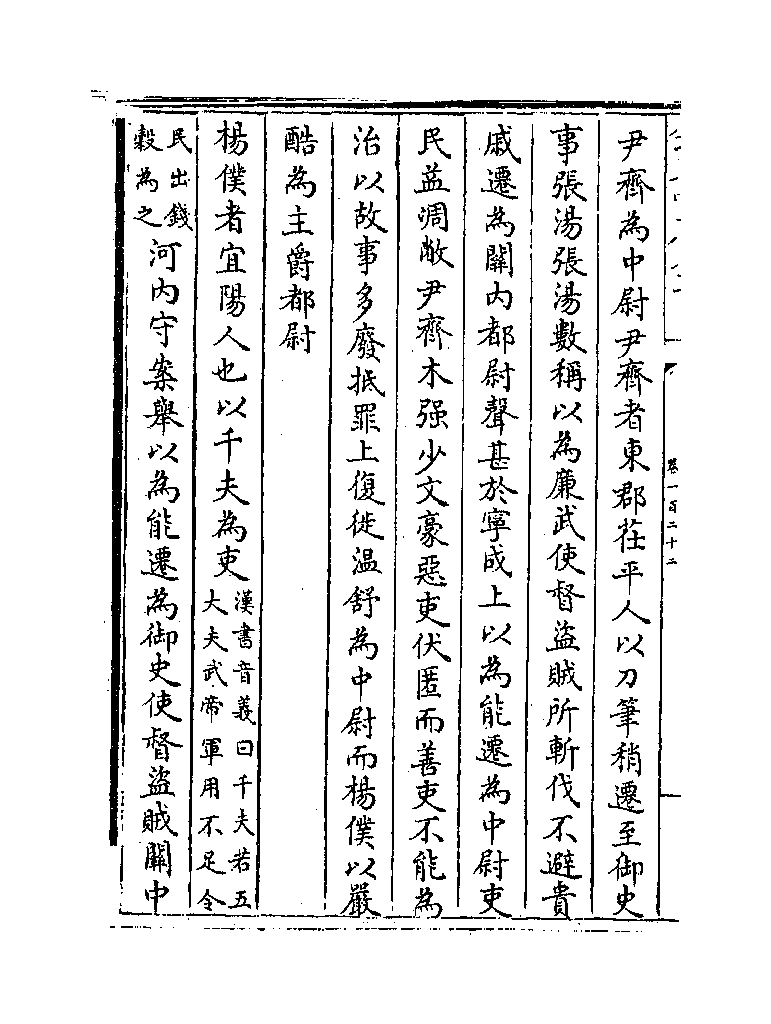 卷一百二十二
尹齊為中尉尹齊者東郡茌平人以刀筆稍遷至御史
事張湯張湯數稱以為廉武使督盜賊所斬伐不避貴
戚遷為關内都尉聲甚於寧成上以為能遷為中尉吏
民益凋敝尹齊木强少文豪惡吏伏匿而善吏不能為
治以故事多廢抵罪上復徙温舒為中尉而楊僕以嚴
酷為主爵都尉
楊僕者宜陽人也以千夫為吏漢書音義曰千夫若五
大夫武帝軍用不足令
民出錢
榖為之河内守案舉以為能遷為御史使督盜賊關中